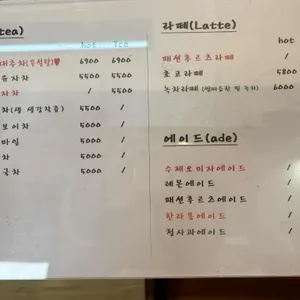 tea)
hot Ice
대추차(무설탕) 6900 6900
유자차 5500 5500
자차 / 5500
차(생 생강착즙) 5500 /
보이차 5000 /
마일 5000 /
차 5000 /
국차 5000 /
라떼(Latte)
hot
패션후르츠라떼 /
초코라떼 5800
녹차라떼 6000
에이드(ade)
수제오미자에이드 /
레몬에이드 /
패션후르츠에이드 /
한라봉에이드 /
청사과에이드 /